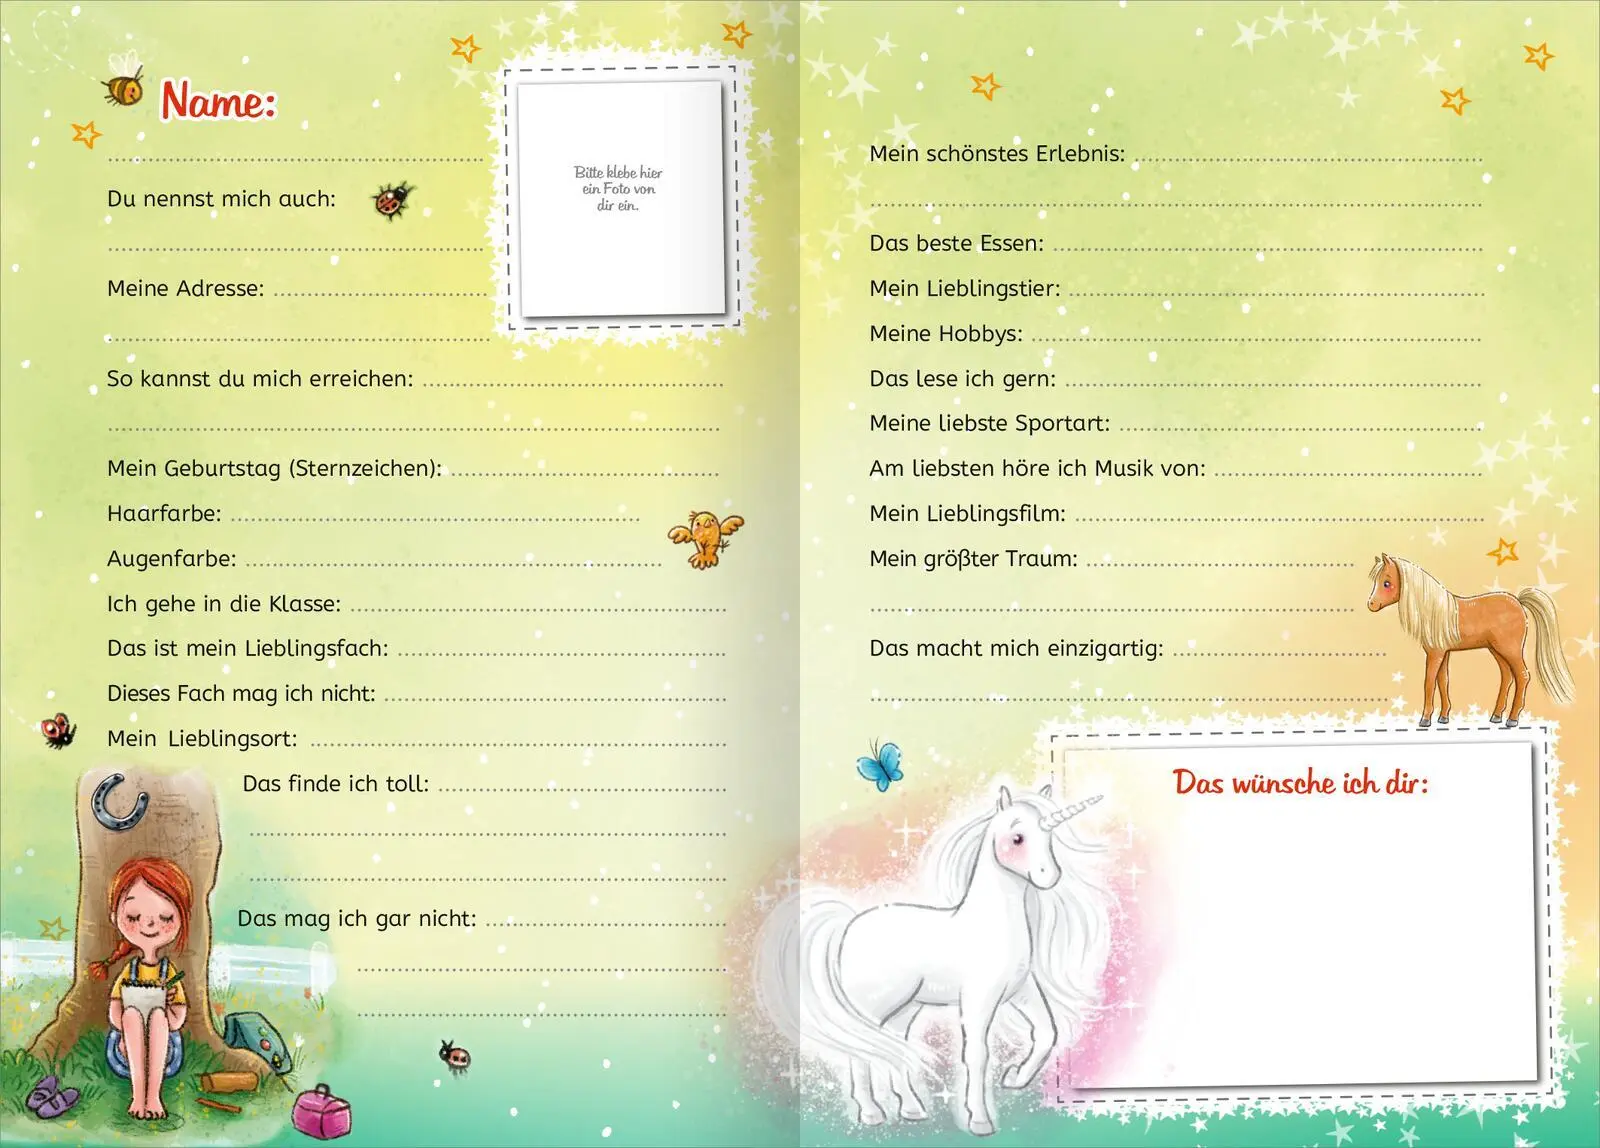 Name:
Bitte klebe hier
ein Foto von
dir ein.
Du nennst mich auch:
Meine Adresse:
So kannst du mich erreichen:
Mein Geburtstag (Sternzeichen):
Haarfarbe:
Augenfarbe:
Ich gehe in die Klasse:
Das ist mein Lieblingsfach:
Dieses Fach mag ich nicht:
Mein Lieblingsort:
Das finde ich toll:
Das mag ich gar nicht:
Mein schönstes Erlebnis:
Das beste Essen:
Mein Lieblingstier:
Meine Hobbys:
Das lese ich gern:
Meine liebste Sportart:
Am liebsten höre ich Musik von:
Mein Lieblingsfilm:
Mein größter Traum:
Das macht mich einzigartig:
Das wünsche ich dir: